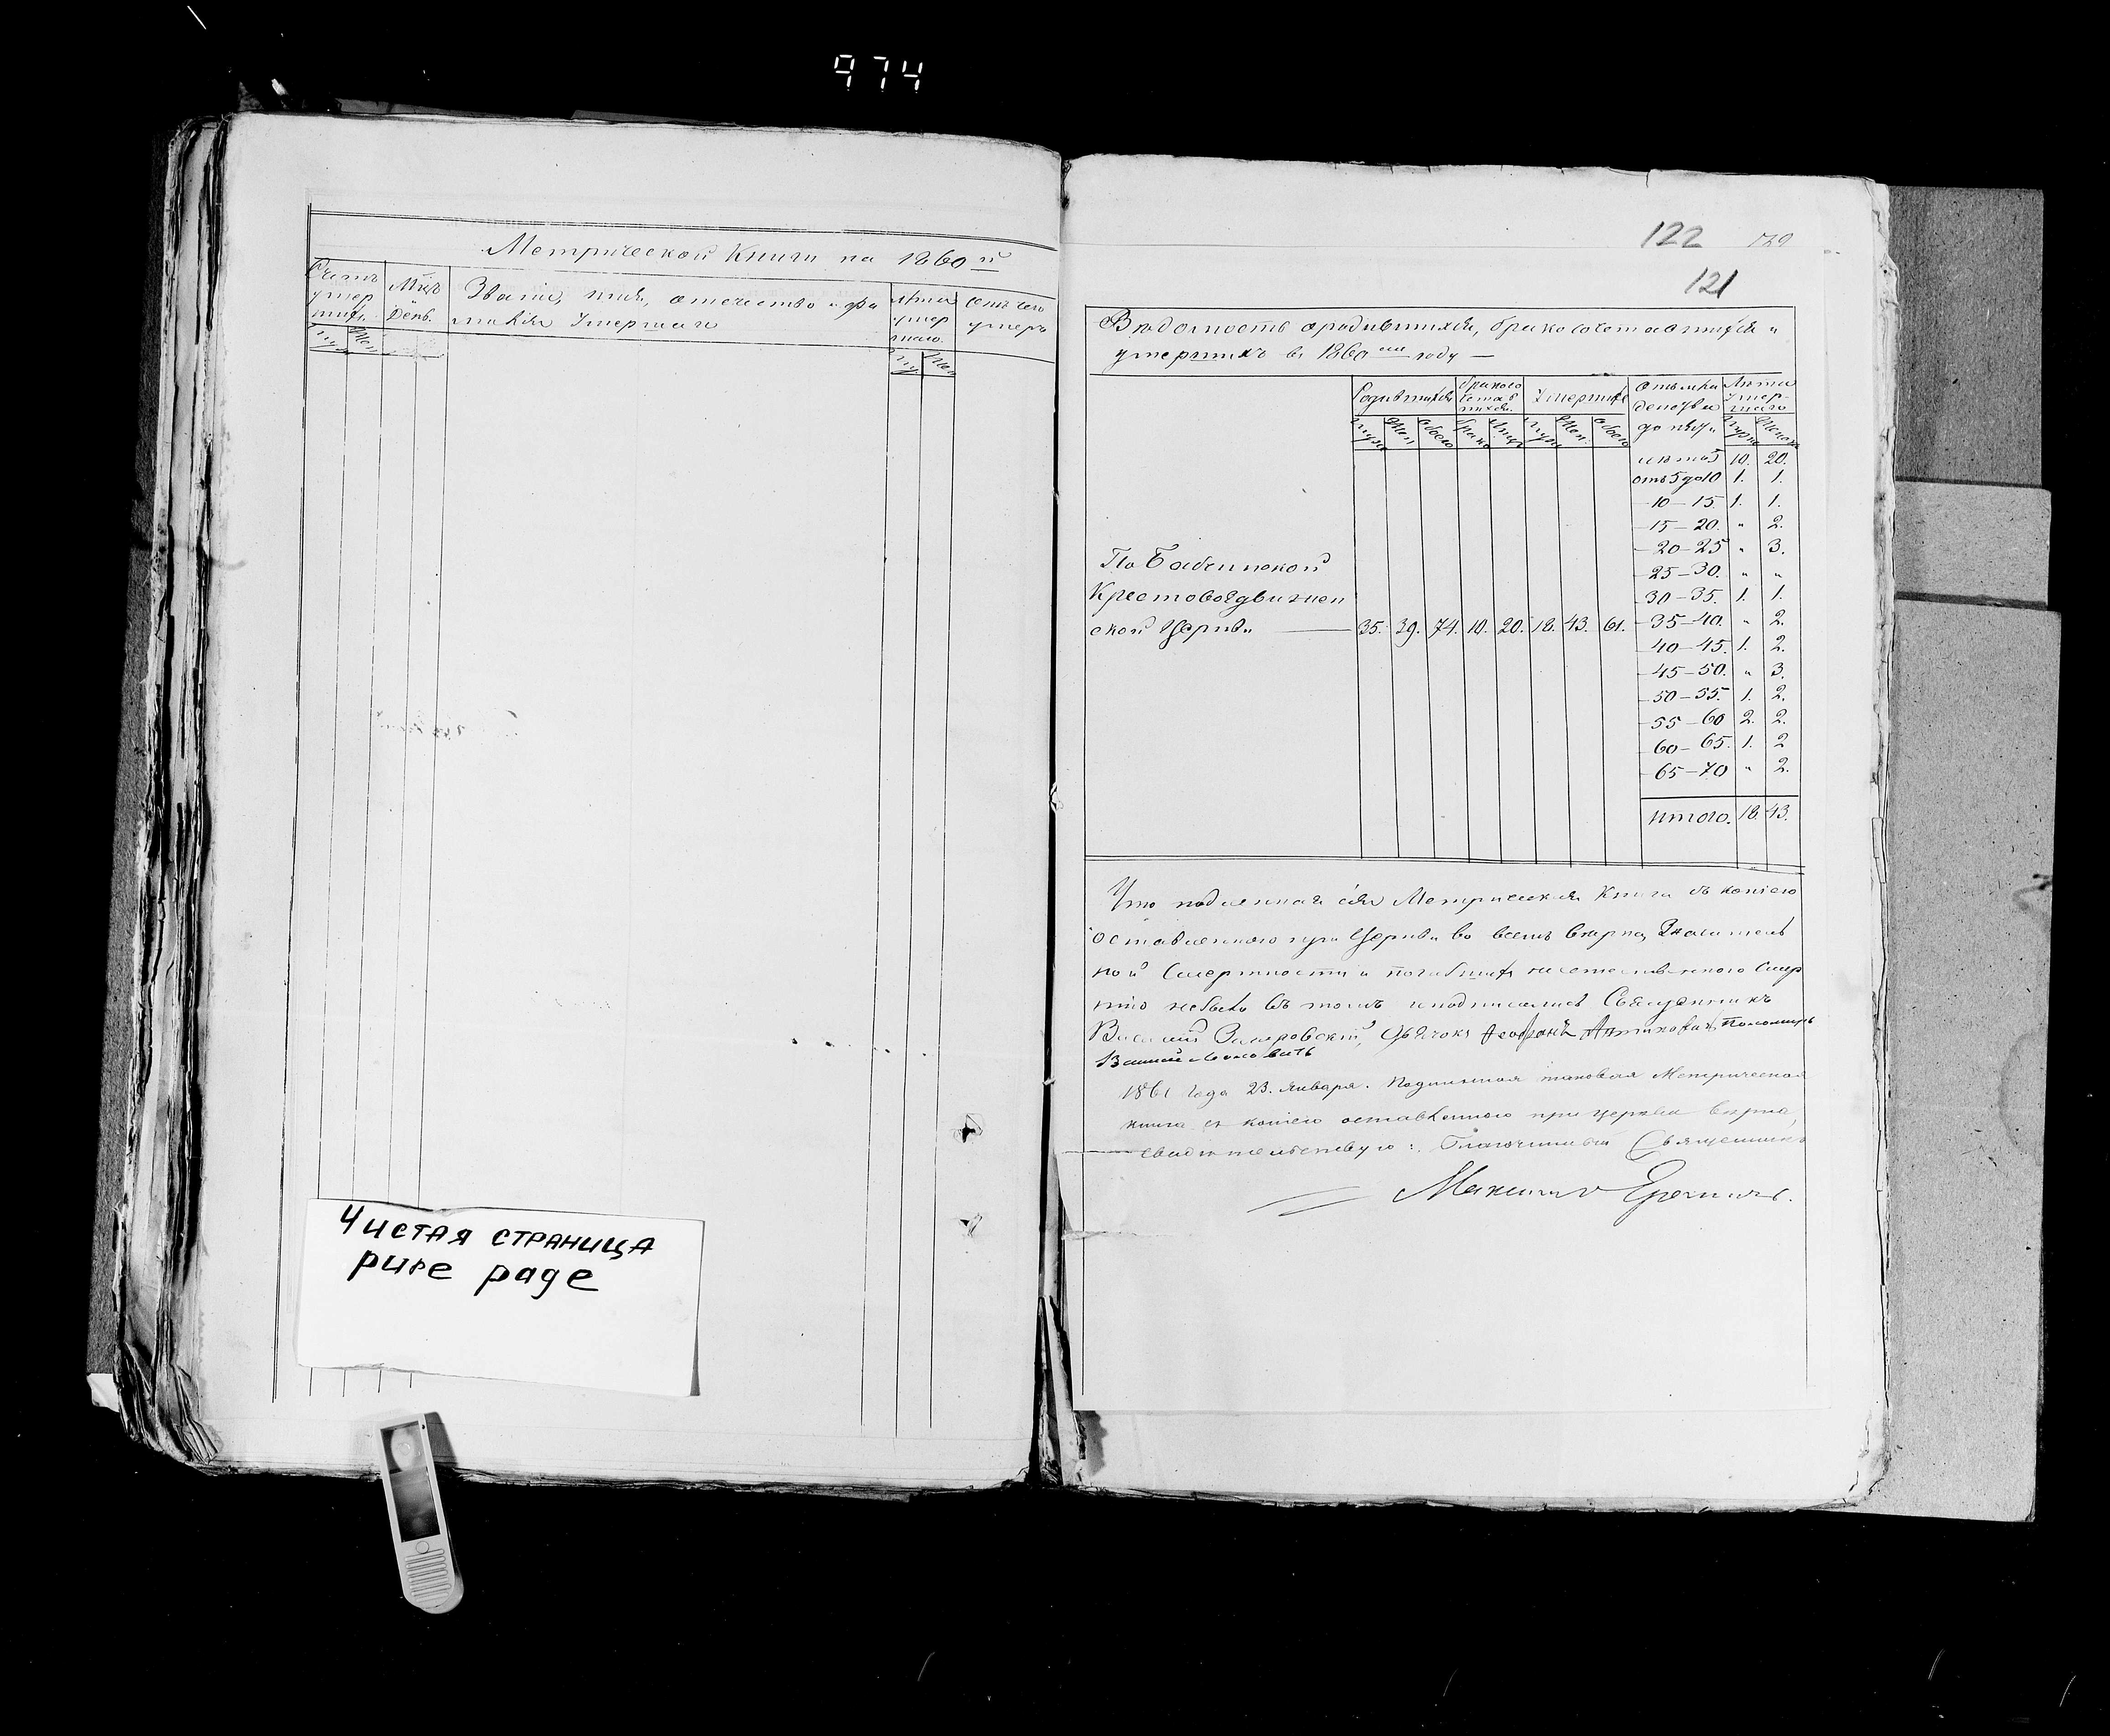 974
Метрической Книги на 1860 й
Счетъ умер шихъ.
Мцъ День.
Званіе, имя, отчество и фа
милія Умершаго
Лѣта умер шаго.
Отъ чего умеръ
Муж Жен
Муж. Жен
Чистая страница
pure page
122
121
Вѣдомость о родившихся, бракосочетавшихся и
умершихъ въ 1860 мъ году —
Родившихся
Бракосо четав шихся.
Умершихъ
Отъ мла денства до пяти
Лѣта Умер- шаго
Муж Жен Обоего Брако Муж Жен. Обоего Мужс Женск
лѣтъ 5 10. 20.
отъ 5 до 10 1. 1.
-10-15. 1. 1.
-15-20. " 2.
-20-25 " 3.
-25-30. " "
30-35. 1. 1.
По Бабинской
Крестовоздвижен
ской Церкви — 35. 39. 74. 10. 20. 18. 43. 61. -35-40. " 2.
-40-45. 1. 2.
-45-50. " 3.
-50-55. 1. 2.
-55-60 2. 2.
60-65. 1. 2
-65-70 " 2.
Итого. 18. 43.
Что подлинная сія Метрическая Книга съ копіею
оставленною при Церкви во всемъ вѣрна, Значитель
ной Смертности и погибшихъ неестественною Смер
тію небыло въ томъ и подписались Священникъ
Василій Дьячокъ Пономарь
1861 года 23. Января. Подлинная таковая Метрическая
книга съ копіею оставленною при церкви вѣрна,
свидѣтельствую: Благочинный Священникъ